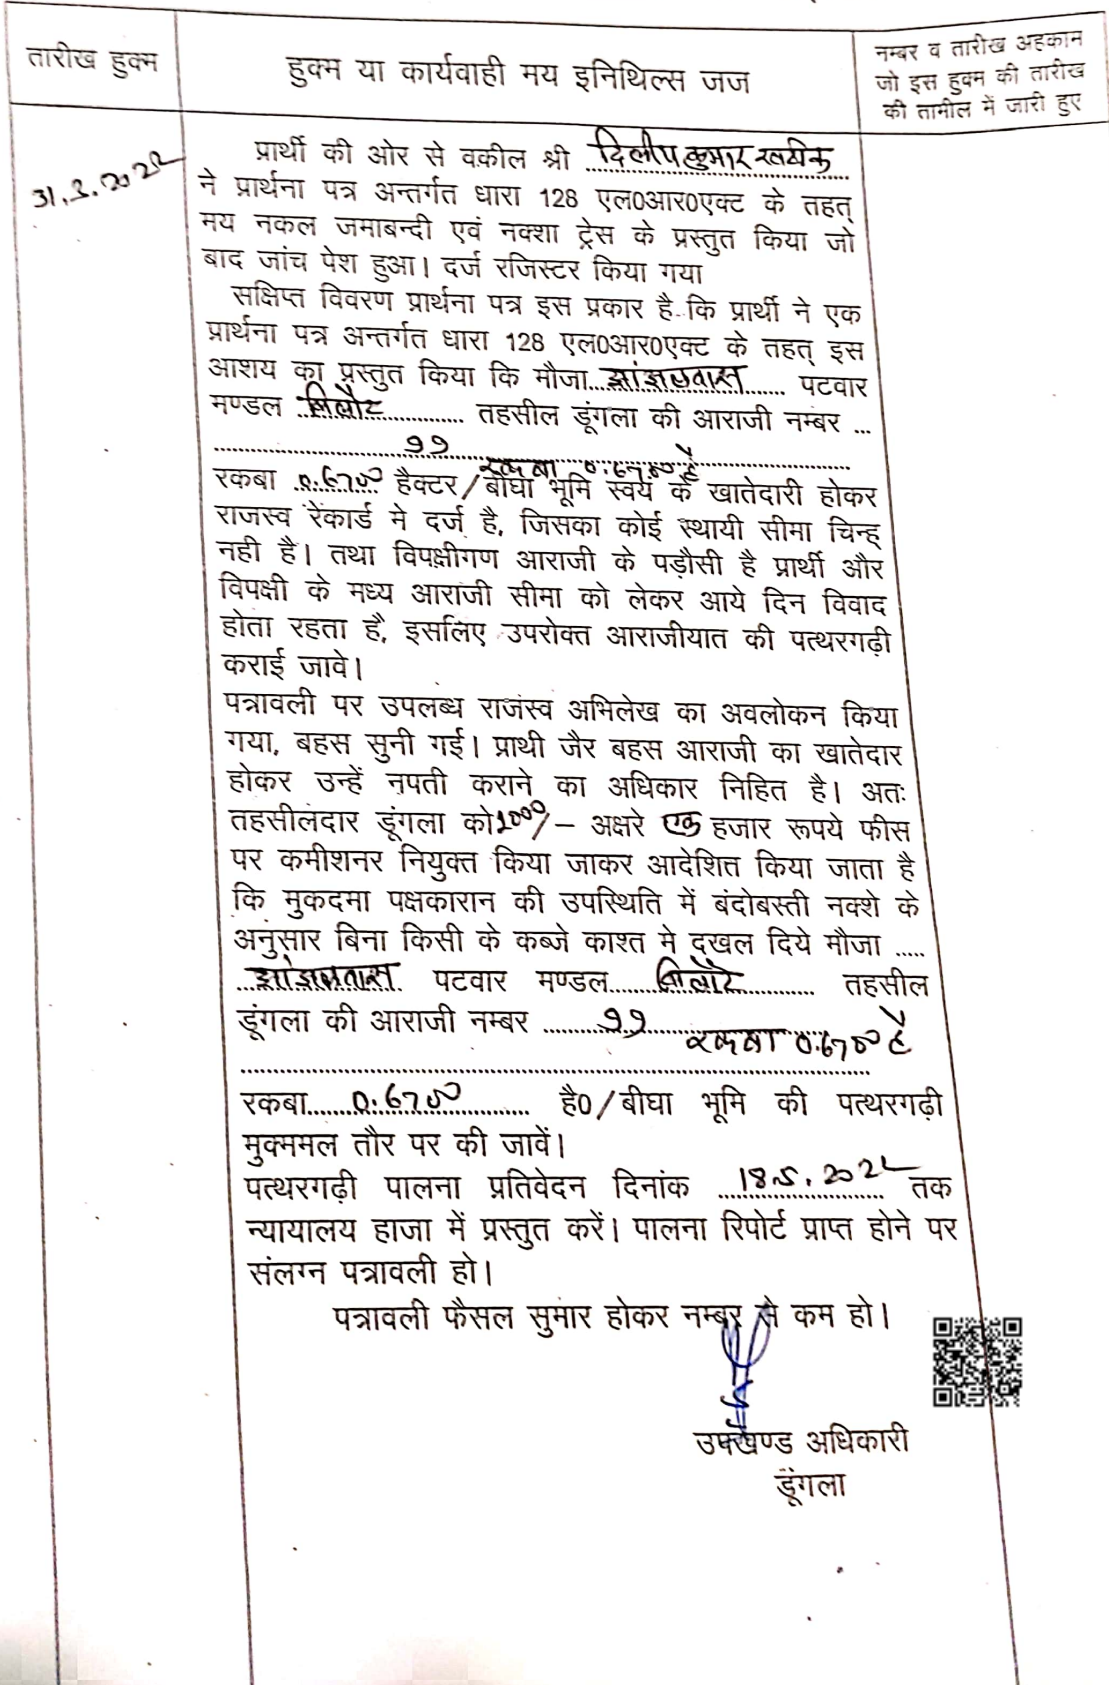 तारीख हुक्म
हुक्म या कार्यवाही मय इनिथिल्स जज
नम्बर व तारीख अहकाम
जो इस हुक्म की तारीख
की तामील में जारी हुए
31.3.2022
प्रार्थी की ओर से वकील श्री दिलीप कुमार खटीक
ने प्रार्थना पत्र अन्तर्गत धारा 128 एल0आर0एक्ट के तहत्
मय नकल जमाबन्दी एवं नक्शा ट्रेस के प्रस्तुत किया जो
बाद जांच पेश हुआ। दर्ज रजिस्टर किया गया
सक्षिप्त विवरण प्रार्थना पत्र इस प्रकार है कि प्रार्थी ने एक
प्रार्थना पत्र अन्तर्गत धारा 128 एल0आर0एक्ट के तहत् इस
आशय का प्रस्तुत किया कि मौजा............ पटवार
मण्डल ............ तहसील डूंगला की आराजी नम्बर ...
99 रकबा 0.6700 है
रकबा 0.6700 हैक्टर/बीघा भूमि स्वयं के खातेदारी होकर
राजस्व रेंकार्ड मे दर्ज है, जिसका कोई स्थायी सीमा चिन्ह्
नही है। तथा विपक्षीगण आराजी के पड़ौसी है प्रार्थी और
विपक्षी के मध्य आराजी सीमा को लेकर आये दिन विवाद
होता रहता है, इसलिए उपरोक्त आराजीयात की पत्थरगढ़ी
कराई जावे।
पत्रावली पर उपलब्ध राजस्व अभिलेख का अवलोकन किया
गया, बहस सुनी गई। प्राथी जैर बहस आराजी का खातेदार
होकर उन्हें नपती कराने का अधिकार निहित है। अतः
तहसीलदार डूंगला को 1000/- अक्षरे एक हजार रूपये फीस
पर कमीशनर नियुक्त किया जाकर आदेशित किया जाता है
कि मुकदमा पक्षकारान की उपस्थिति में बंदोबस्ती नक्शे के
अनुसार बिना किसी के कब्जे काश्त मे दखल दिये मौजा .....
............ पटवार मण्डल............ तहसील
डूंगला की आराजी नम्बर .........99.........
रकबा 0.6700 है
रकबा........0.6700........ है0/बीघा भूमि की पत्थरगढ़ी
मुक्ममल तौर पर की जावें।
पत्थरगढ़ी पालना प्रतिवेदन दिनांक 18.5.2022 तक
न्यायालय हाजा में प्रस्तुत करें। पालना रिपोर्ट प्राप्त होने पर
संलग्न पत्रावली हो।
पत्रावली फैसल सुमार होकर नम्बर से कम हो।
उपखण्ड अधिकारी
डूंगला